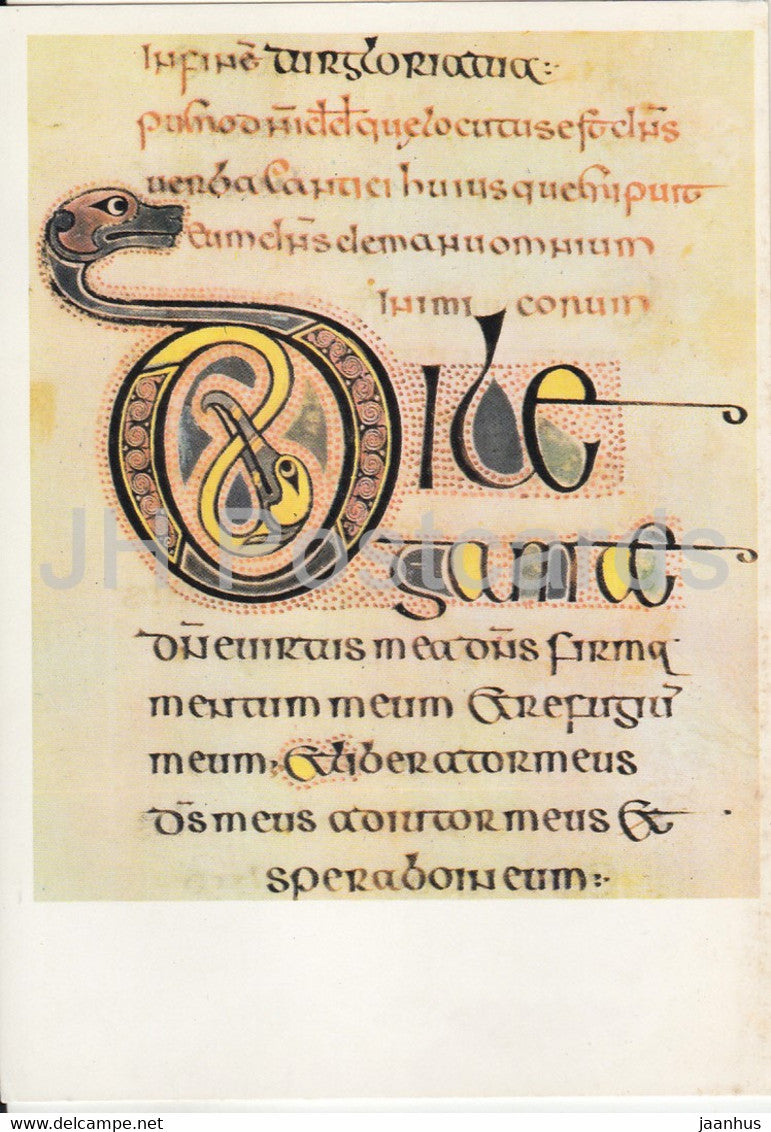 In finē tuâ gloria tua:
dn̄i dd̄ que locutus est dn̄s
uerba cantici huius que eripuit
eum dn̄s de manu omnium
inimicorum
Dile
gam te
dn̄e uirtus mea dn̄s firma
mentum meum & refugiū
meum, & liberator meus
ds̄ meus adiutor meus &
sperabo in eum:
JH Postcards
www.delcampe.net
jaanhus